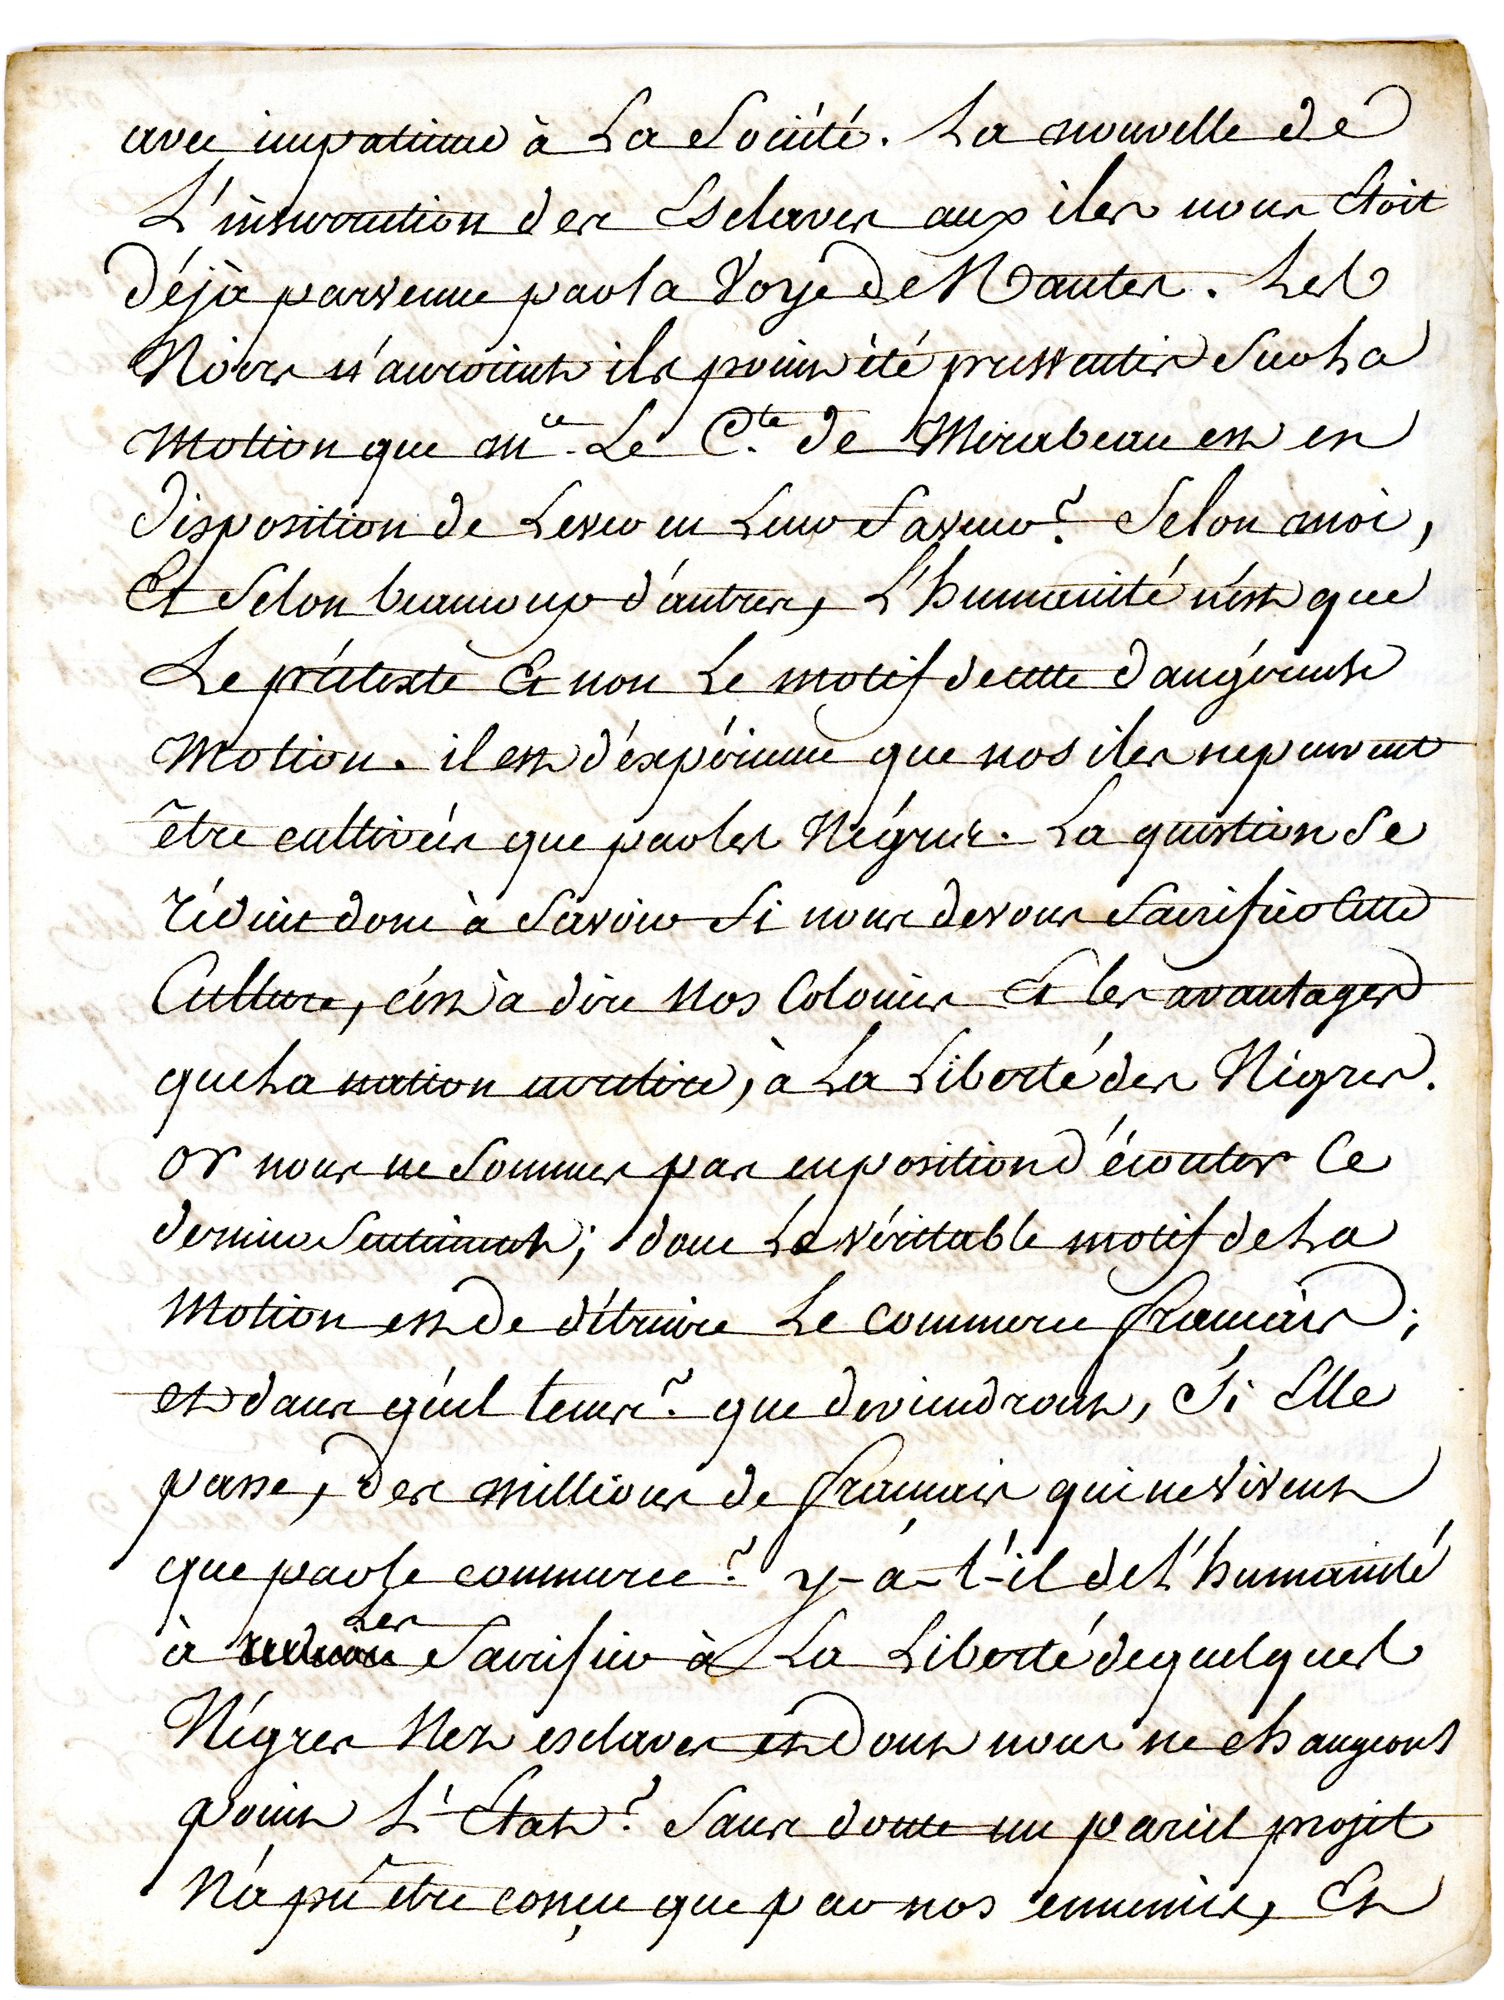 avec impatience à La Société. La nouvelle de
L'insurrection des Esclaves aux iles nous Etoit
déjà parvenue par la Voye de Nantes. Les
Noirs n'auroient ils point été pressentis Sur La
Motion que m.r Le C.te de Mirabeau est en
disposition de Lever en Leur faveur? Selon moi,
Et Selon beaucoup d'autres, L'humanité n'est que
Le prétexte Et non Le motif de cette dangéreuse
Motion. il est d'expérience que nos iles ne peuvent
être cultivées que par les Négres. La question Se
réduit donc à Savoir Si nous devons Sacrifier Cette
Culture, c'est à dire Nos Colonies Et les avantages
que La nation en retire, à La Liberté des Négres.
or nous ne Sommes pas en position d'écouter Ce
dernier Sentiment; donc Le véritable motif de La
Motion est de détruire Le commerce francais;
et dans quel tems? que deviendront, Si Elle
passe, des millions de francais qui ne vivent
que par Le commerce? y-a-t-il de L'humanité
à Les Sacrifier à La Liberté de quelques
Négres Nés esclaves et dont nous ne changeons
point L'Etat? Sans doute un pareil projet
N'a pu être conçu que par nos ennemis, Et